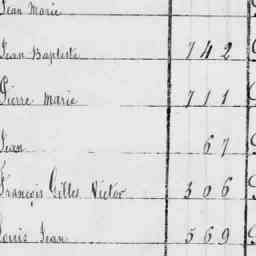 Jean Marie
Jean Baptiste 742
Pierre Marie 711
Jean 67
François Gilles Victor 306
Louis Jean 569